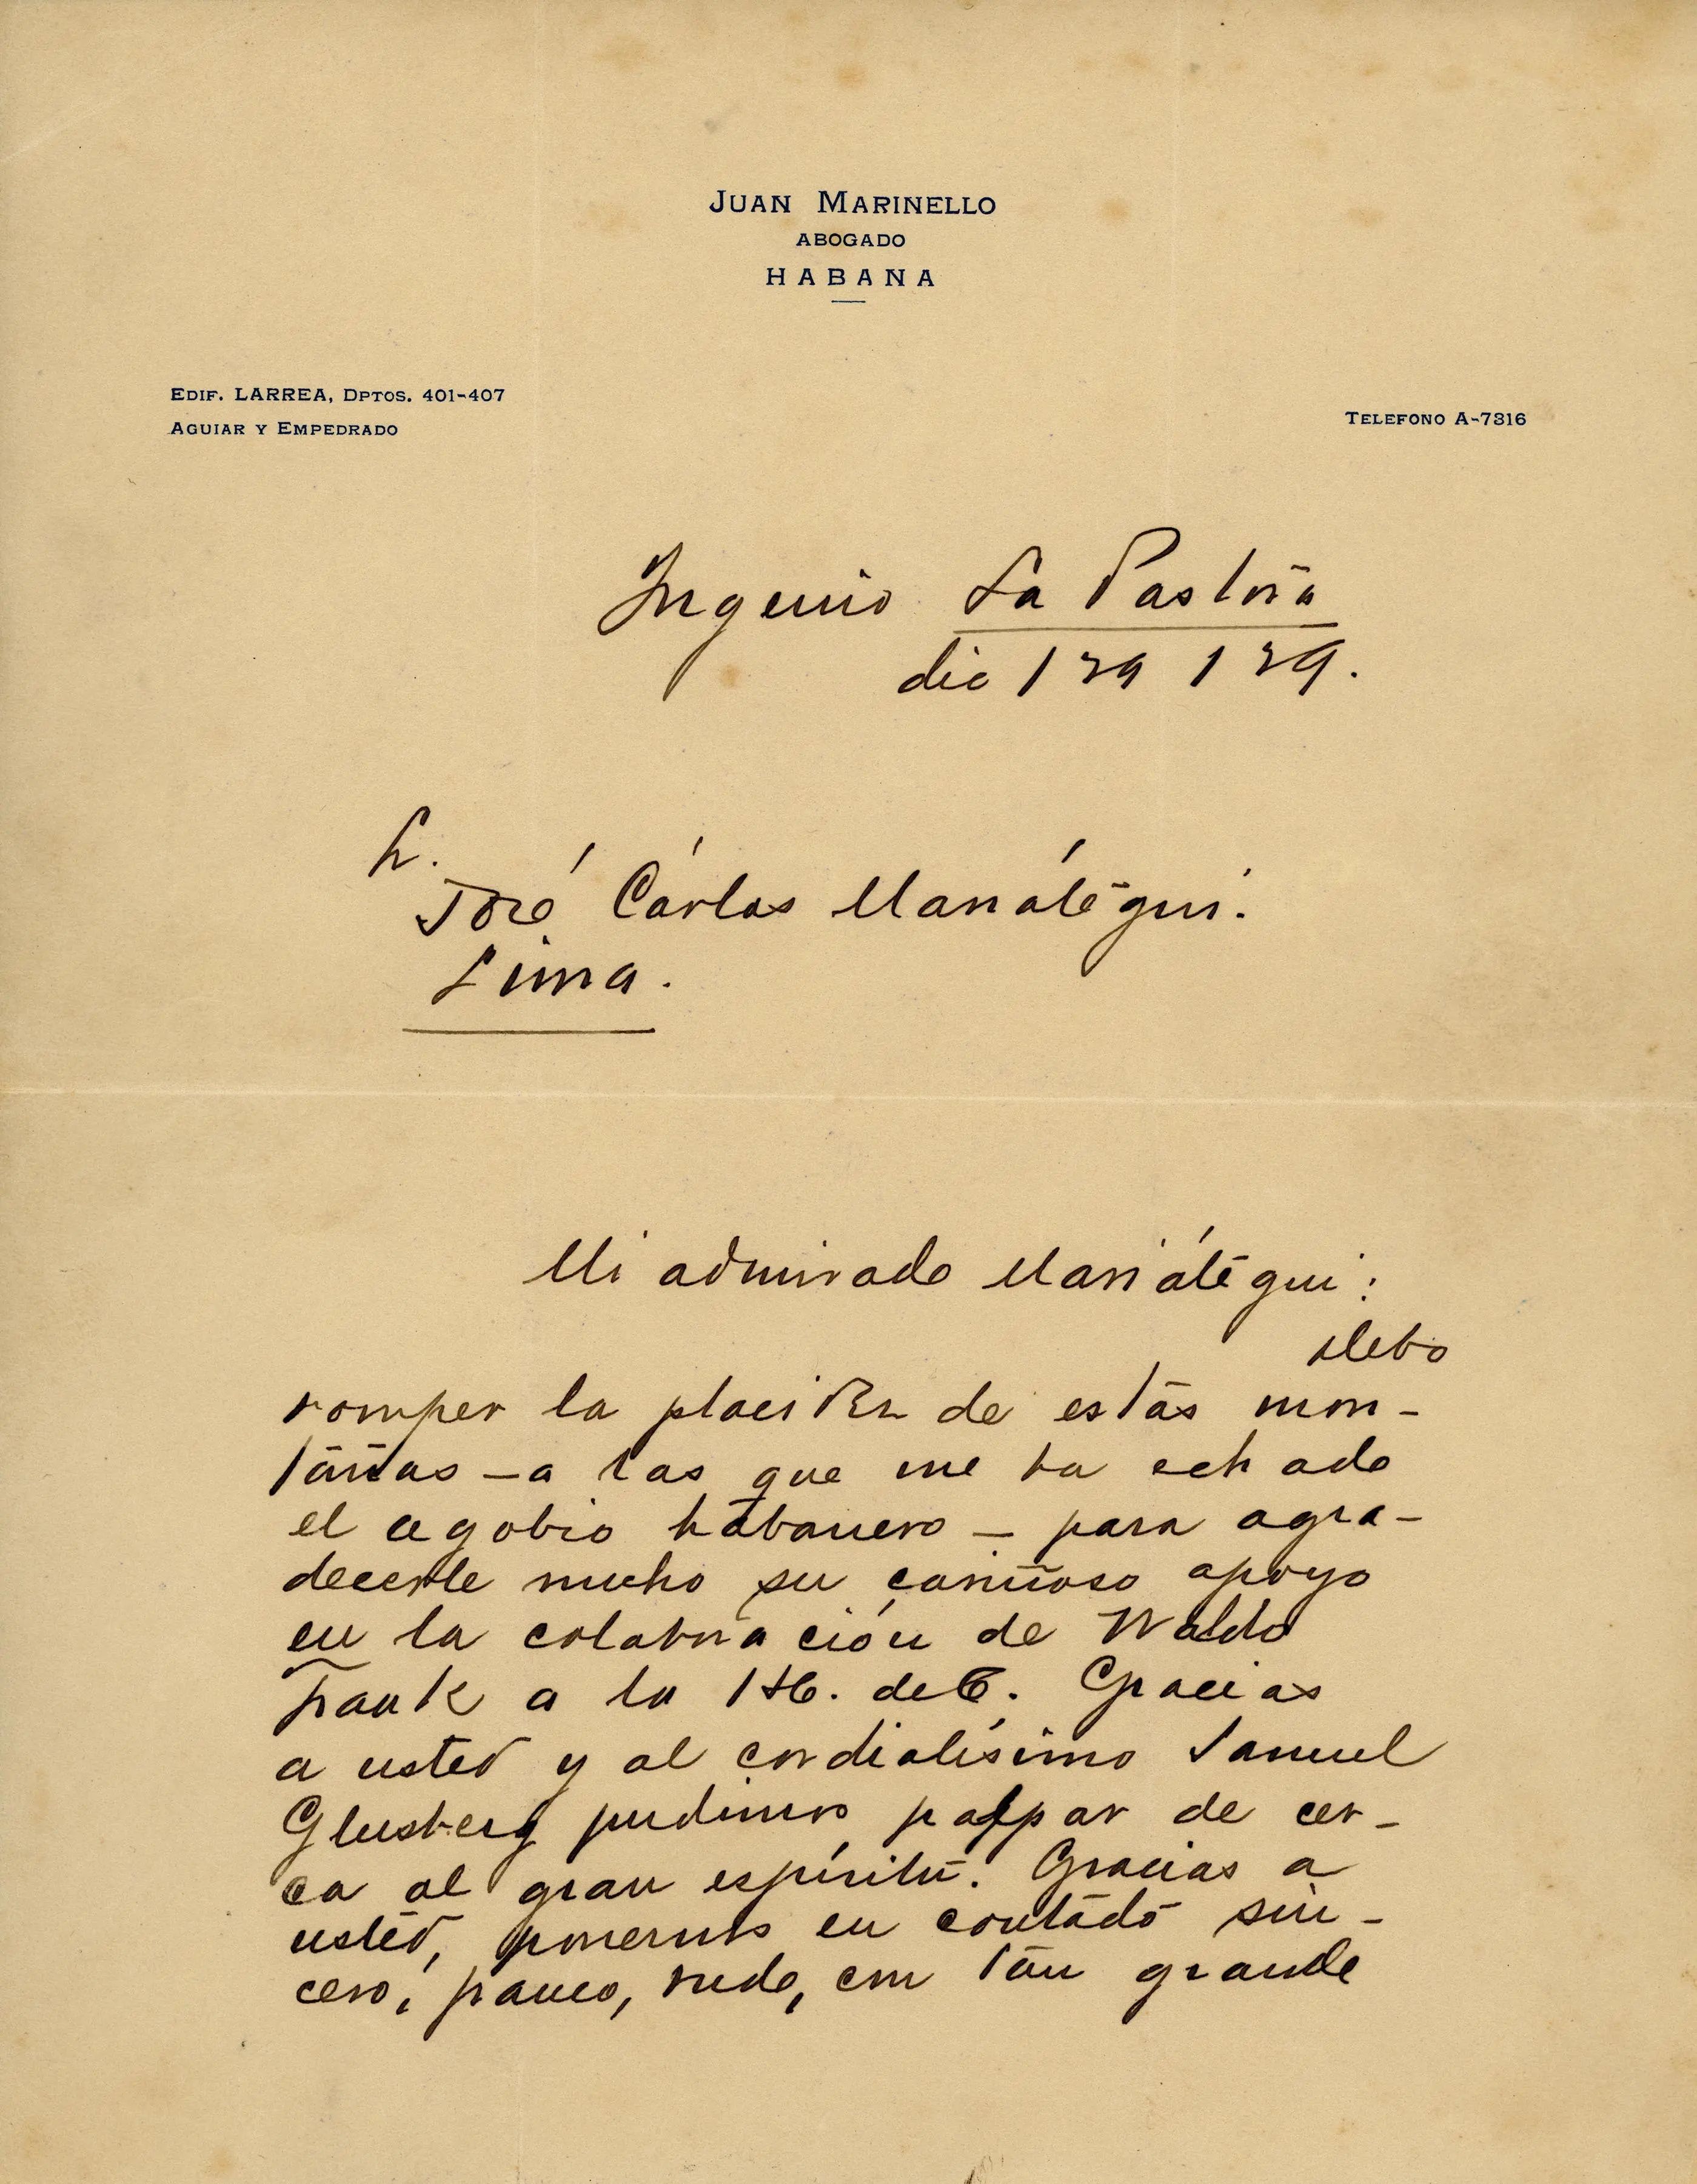 JUAN MARINELLO
ABOGADO
HABANA
EDIF. LARREA, DPTOS. 401-407
AGUIAR Y EMPEDRADO
TELEFONO A-7316
Ingenio La Pastora
dic / 29 / 29.
S.
José Cárlos Mariátegui.
Lima.
Mi admirado Mariátegui:
debo
romper la placidez de estas mon-
tañas - a las que me ha echado
el agobio habanero - para agra-
decerle mucho su cariñoso apoyo
en la colaboración de Waldo
Frank a la H. de C. Gracias
a usted y al cordialísimo Samuel
Glusberg pudimos palpar de cer-
ca al gran espíritu. Gracias a
usted, ponernos en contacto sin-
cero, franco, rudo, con tan grande